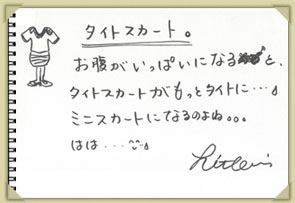 タイトスカート。
お腹がいっぱいになると、
タイトスカートがもっとタイトに…♪
ミニスカートにてなるのよね。。。
はは…^^♪